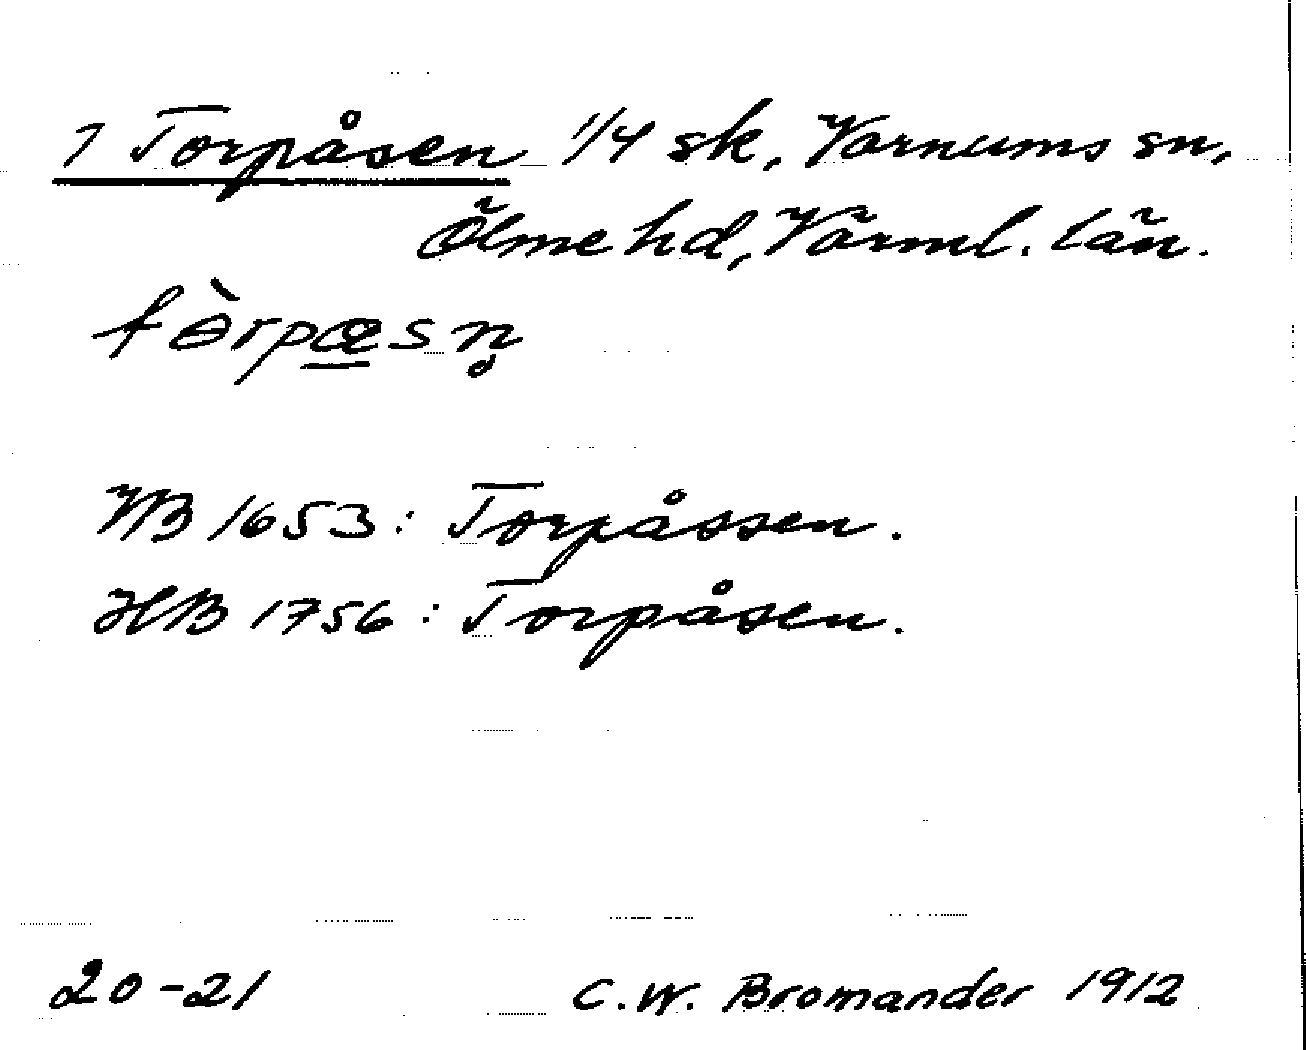 1 Torpåsen 1/4 sk, Varnums sn,
Ölme hd, Värml. län.
tòrpæsn̥
VB 1653: Torpåssen.
HB 1756: Torpåsen.
20-21 C. W. Bromander 1912